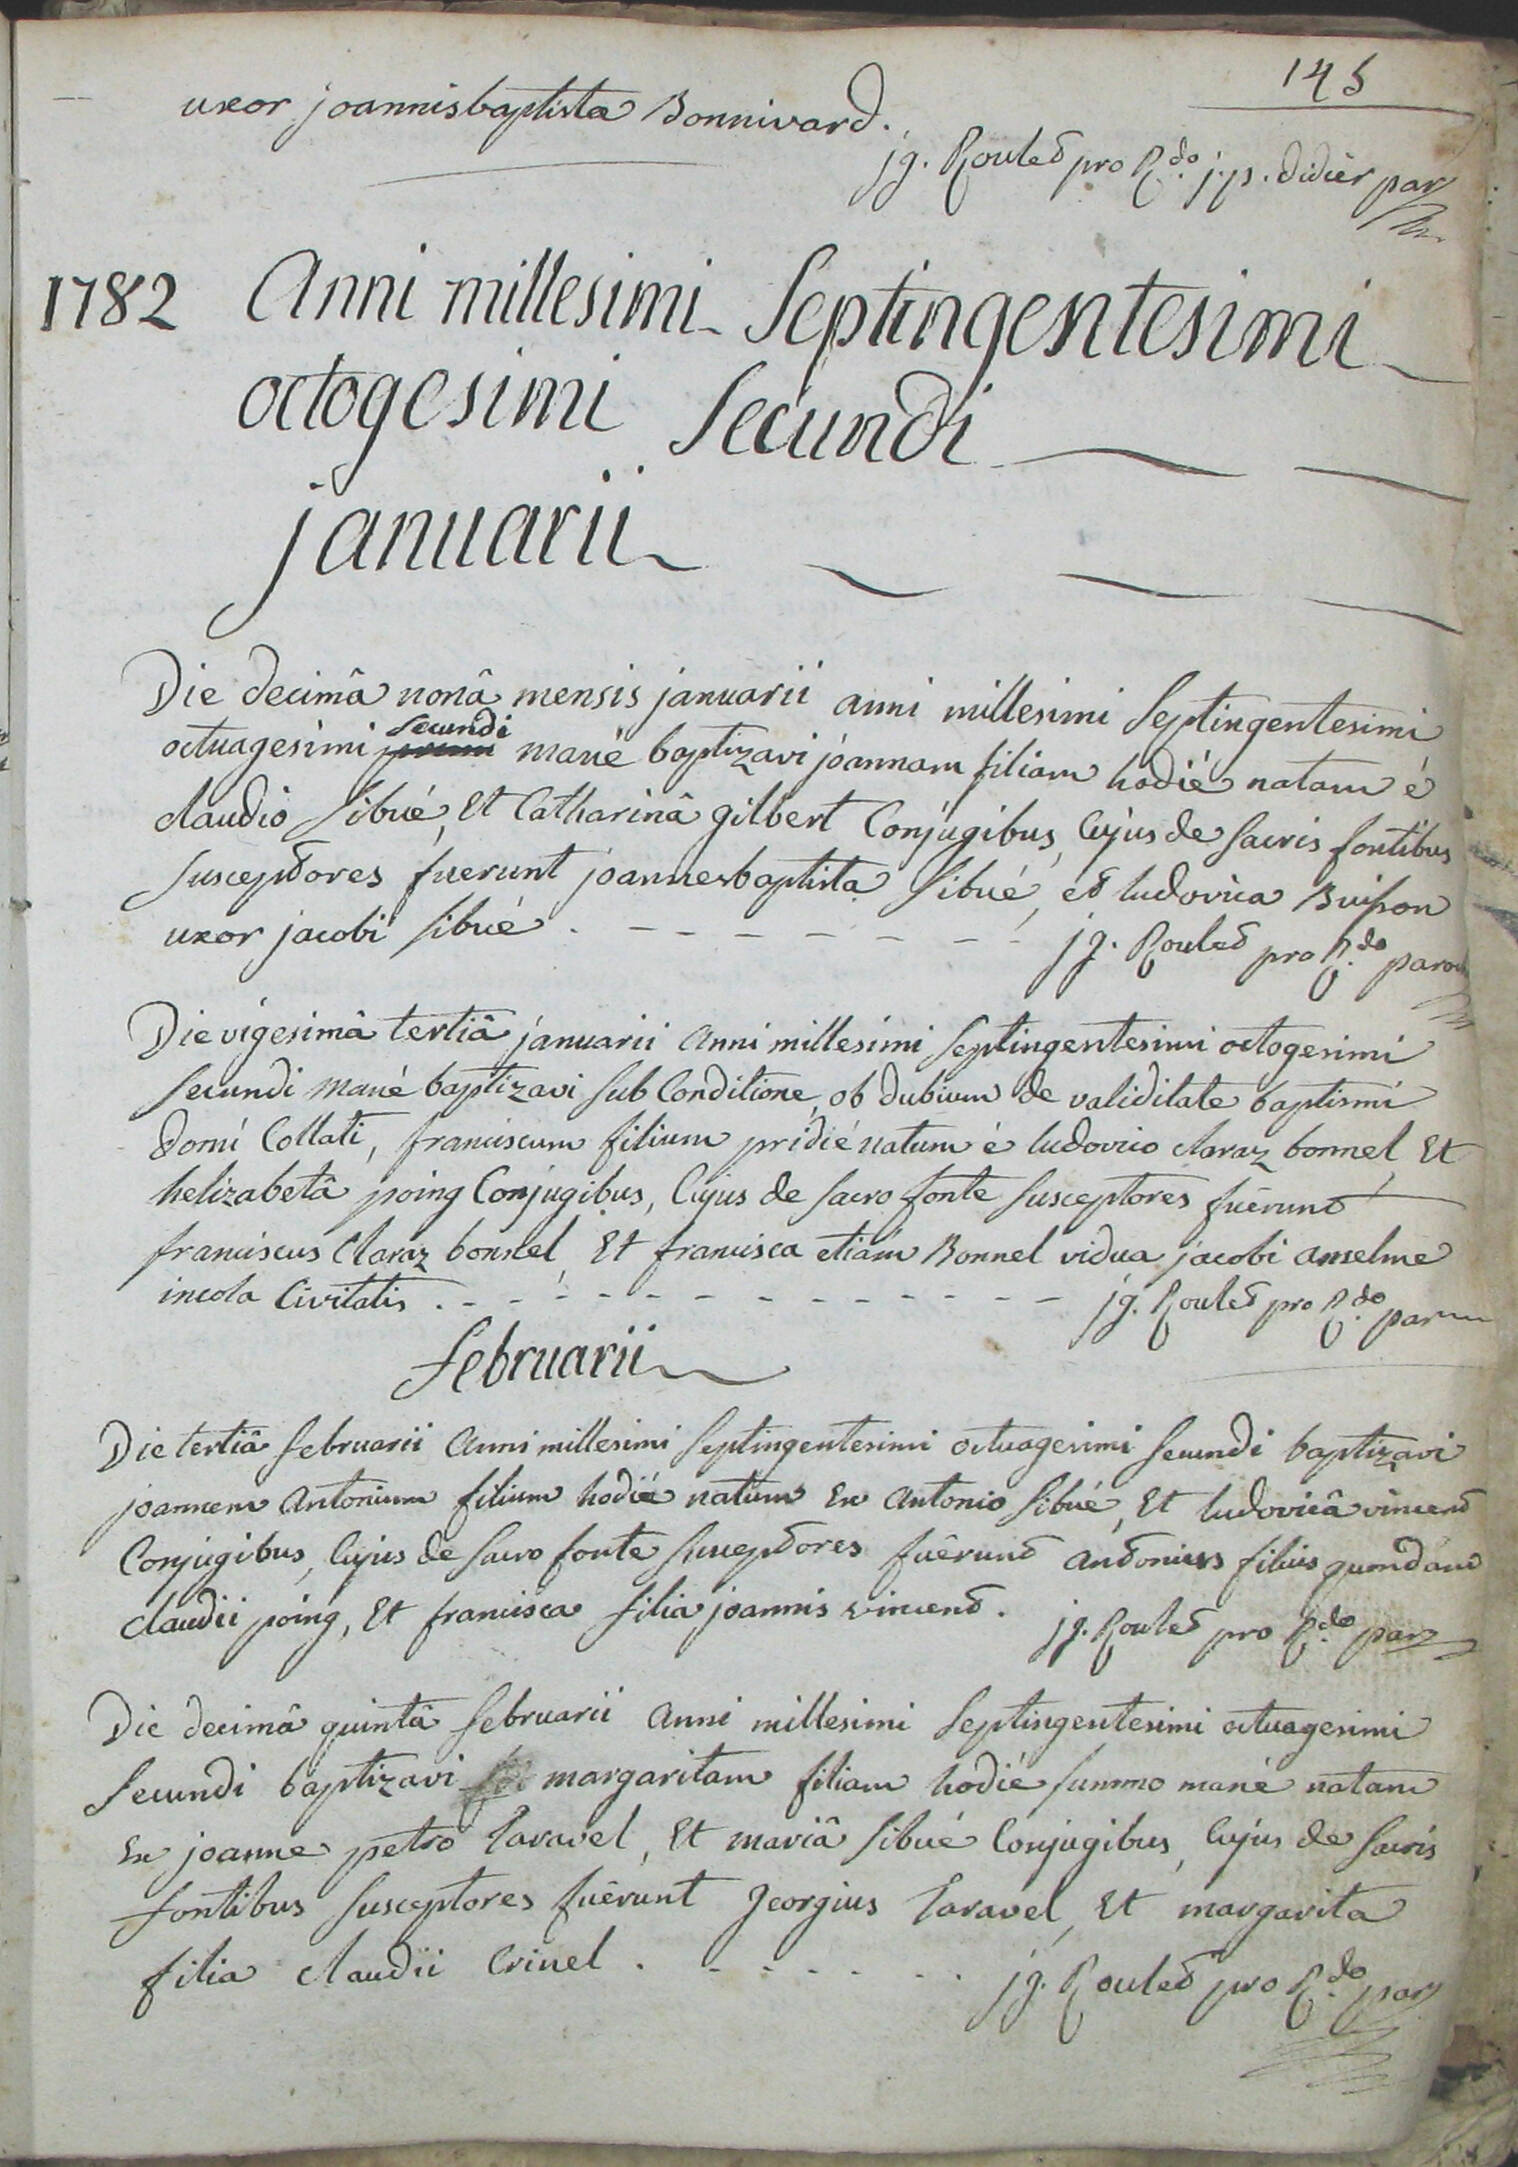 145
uxor joannisbaptista Bonnivard.
jg. Roulet pro R.do j.p. didier par
1782 Anni millesimi Septingentesimi
octogesimi Secundi
januarii
Die decimâ nonâ mensis januarii anni millesimi Septingentesimi
secundi
octuagesimi primi mané baptizavi joannam filiam hodié natam é
claudio Sibué, Et Catharinâ gilbert Conjugibus, Cujus de Sacris fontibus
Susceptores fuerunt joannesbaptista Sibué, et ludovica Buisson
uxor jacobi Sibué . - - - - - - - jg. Roulet pro R.do paroch
Die vigesimâ tertiâ januarii Anni millesimi Septingentesimi octogesimi
Secundi mané baptizavi Sub Conditione, ob dubium de validitate baptismi
domi Collati, franciscum filium pridié natum é ludovico claraz bonnel, Et
helizabetâ poing Conjugibus, Cujus de Sacro fonte Susceptores fuêrunt
franciscus Claraz bonnel, Et francisca etiam Bonnel vidua jacobi anselme
incola Civitatis . - - - - - - - - - - jg. Roulet pro R.do par
februarii
Die tertiâ februarii Anni millesimi Septingentesimi octuagesimi Secundi baptizavi
joannem Antonium filium hodié natum Ex Antonio Sibué, Et ludovicâ vincent
Conjugibus, Cujus de Sacro fonte Susceptores fuêrunt antonius filius quondam
claudii poing, Et francisca filia joannis vincent. jg. Roulet pro R.do par
Die decimâ quintâ februarii Anni millesimi Septingentesimi octuagesimi
Secundi baptizavi margaritam filiam hodié summo mané natam
Ex joanne petro Taravel, Et mariâ Sibué Conjugibus, Cujus de Sacris
fontibus Susceptores fuêrunt georgius Taravel, Et margarita
filia claudii Crinel . - - - - - . jg. Roulet pro R.do par